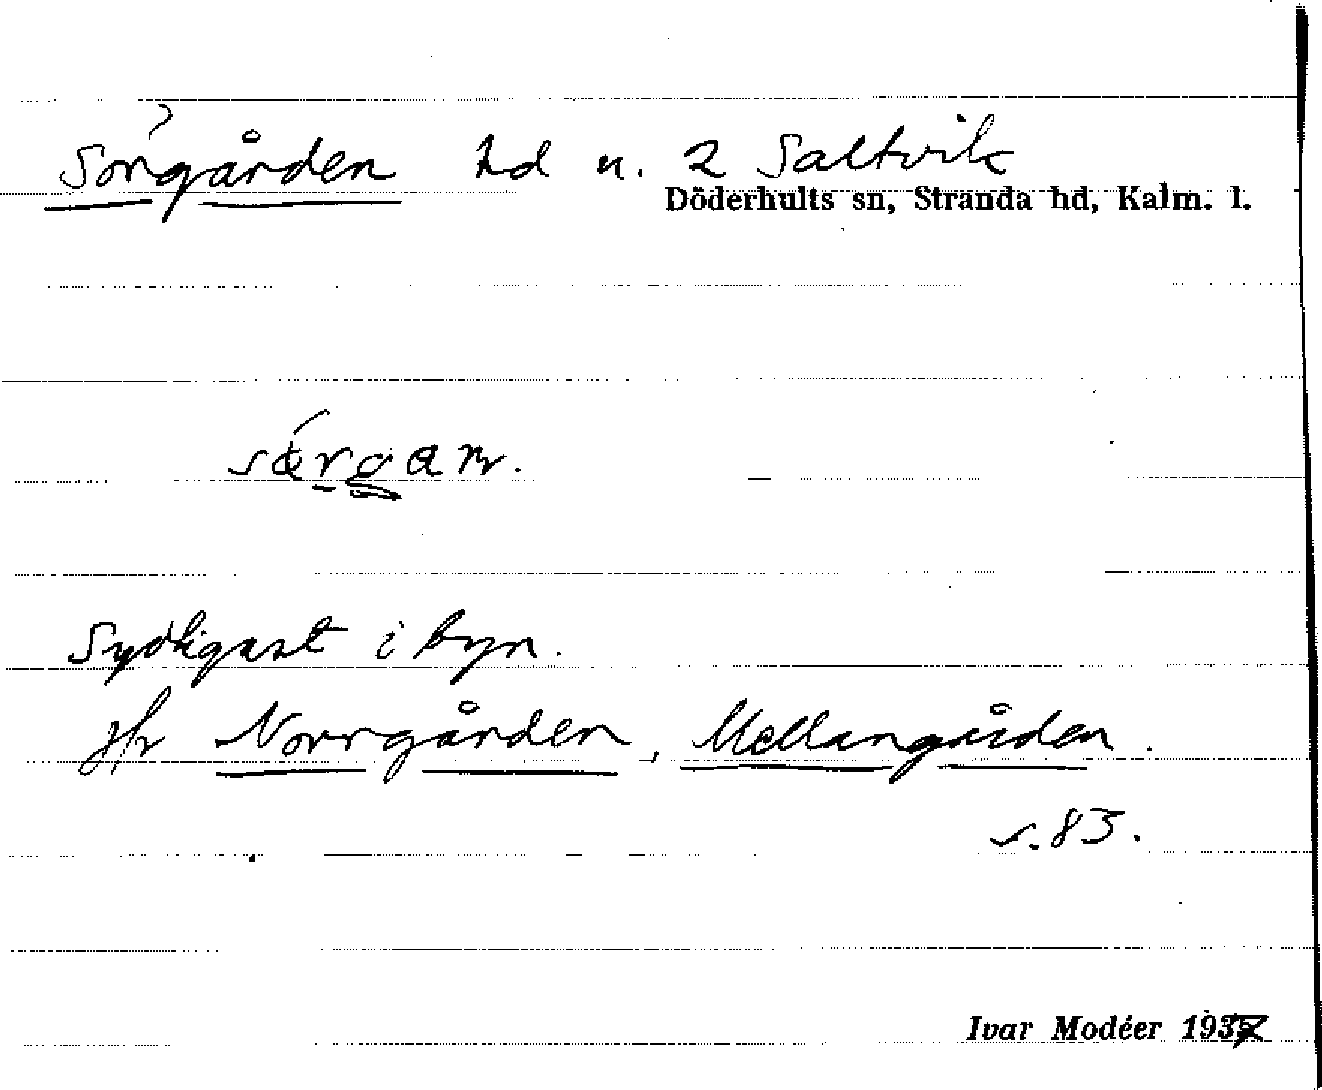 Sörgården hd n. 2 Saltvik
Döderhults sn, Stranda hd, Kalm. l.
Sydligast i byn.
Jfr Norrgården, Mellangården.
s. 83.
Ivar Modéer 1937